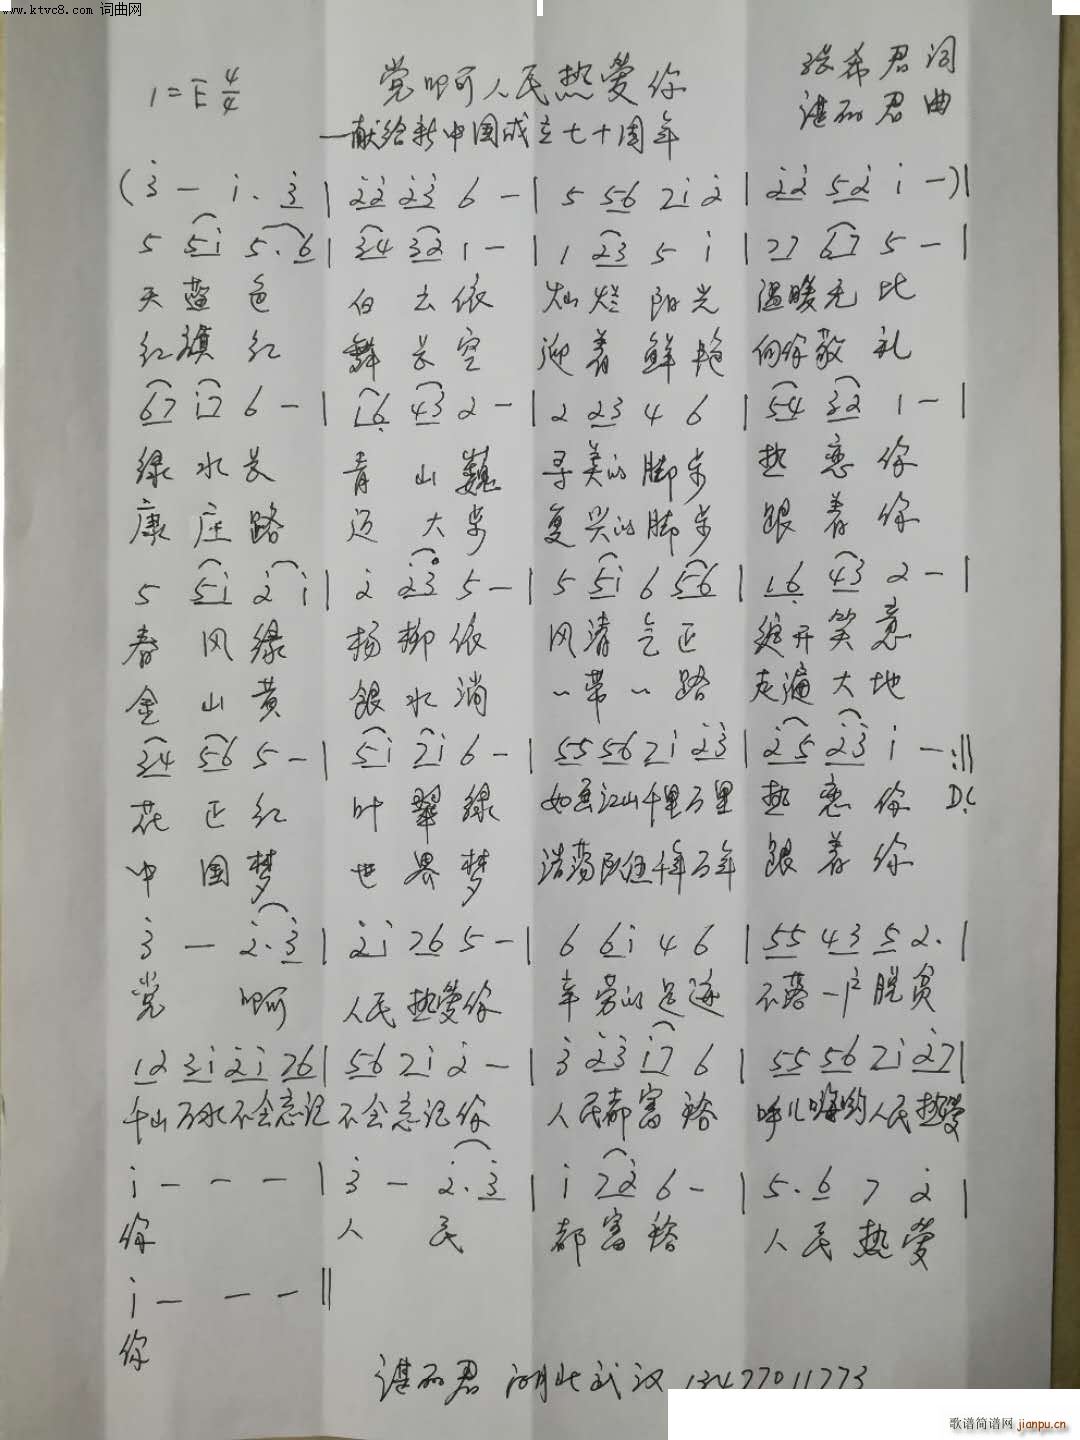 www.ktvc8.com 词曲网
1=E 4/4 党啊人民热爱你 张希君词
—献给新中国成立七十周年 谌丽君曲
(3̇ — i. 3̇ | 2̇2̇ 2̇3̇ 6 — | 5 56 7i 2̇ | 2̇2̇ 52̇ i —)|
5 5i 5.6 | 34 32 1 — | 1 23 5 i | 77 67 5 — |
天蓝色 白云依 灿烂阳光 温暖无比
红旗红 舞长空 迎着鲜艳 向你敬礼
67 i7 6 — | 16 43 2 — | 2 23 4 6 | 54 32 1 — |
绿水长 青山巍 寻美的脚步 热恋你
康庄路 迈大步 复兴的脚步 跟着你
5 5i 2̇ i | 2̇ 2̇3̇ 5 — | 5 5i 6 56 | 16 43 2 — |
春风绿 杨柳依 风清气正 绽开笑意
金山黄 银水淌 一带一路 走遍大地
34 56 5 — | 5i 7i 6 — | 55 56 7i 2̇3̇ | 2̇5 2̇3̇ i — :||
花正红 叶翠绿 如画江山千里万里 热恋你 D.C
中国梦 世界梦 浩荡队伍千年万年 跟着你
3̇ — 2̇.3̇ | 2̇i 76 5 — | 6 6i 4 6 | 55 43 5 2. |
党啊 人民热爱你 辛劳的足迹 不落一户脱贫
12 3i 2̇i 76 | 56 7i 2̇ — | 3̇ 2̇3̇ i7 6 | 55 56 7i 2̇7 |
千山万水不会忘记 不会忘记你 人民都富裕 呼儿嗨哟人民热爱
i — — — | 3̇ — 2̇.3̇ | i 72̇ 6 — | 5. 6 7 2̇ |
你 人民 都富裕 人民热爱
i — — — ||
你
谌丽君 湖北武汉 13477011773
歌谱简谱网 jianpu.cn